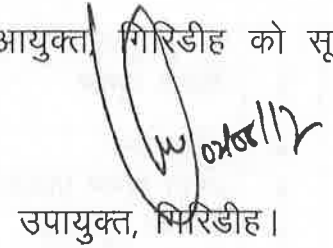 आयुक्त, गिरिडीह को सू
उपायुक्त, गिरिडीह।